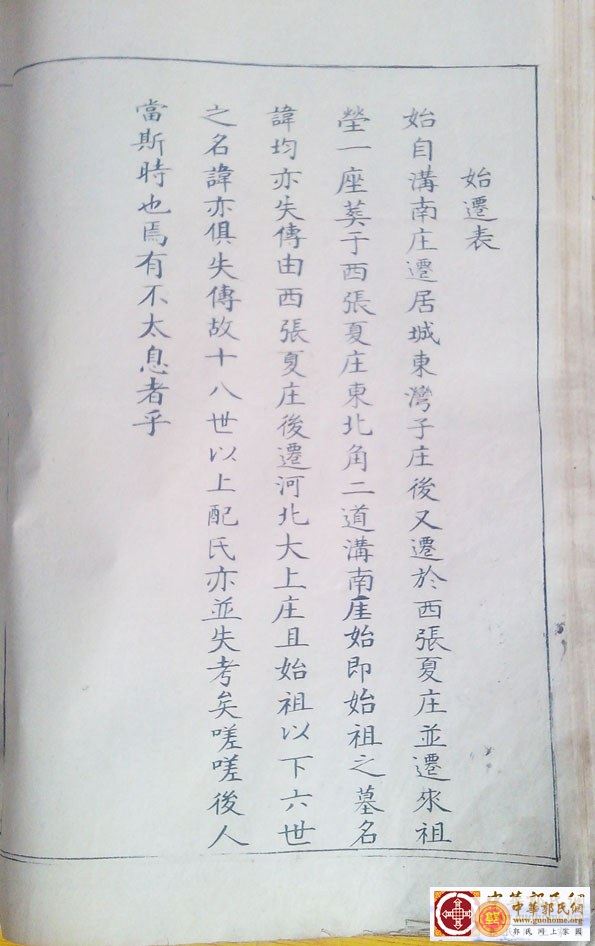 始遷表
始自溝南庄遷居城東灣子庄後又遷於西張夏庄並遷來祖
塋一座葬于西張夏庄東北角二道溝南厓始即始祖之墓名
諱均亦失傳由西張夏庄後遷河北大上庄且始祖以下六世
之名諱亦俱失傳故十八世以上配氏亦並失考矣嗟嗟後人
當斯時也焉有不太息者乎
中華郭氏網
www.guohome.com
郭氏网上家園